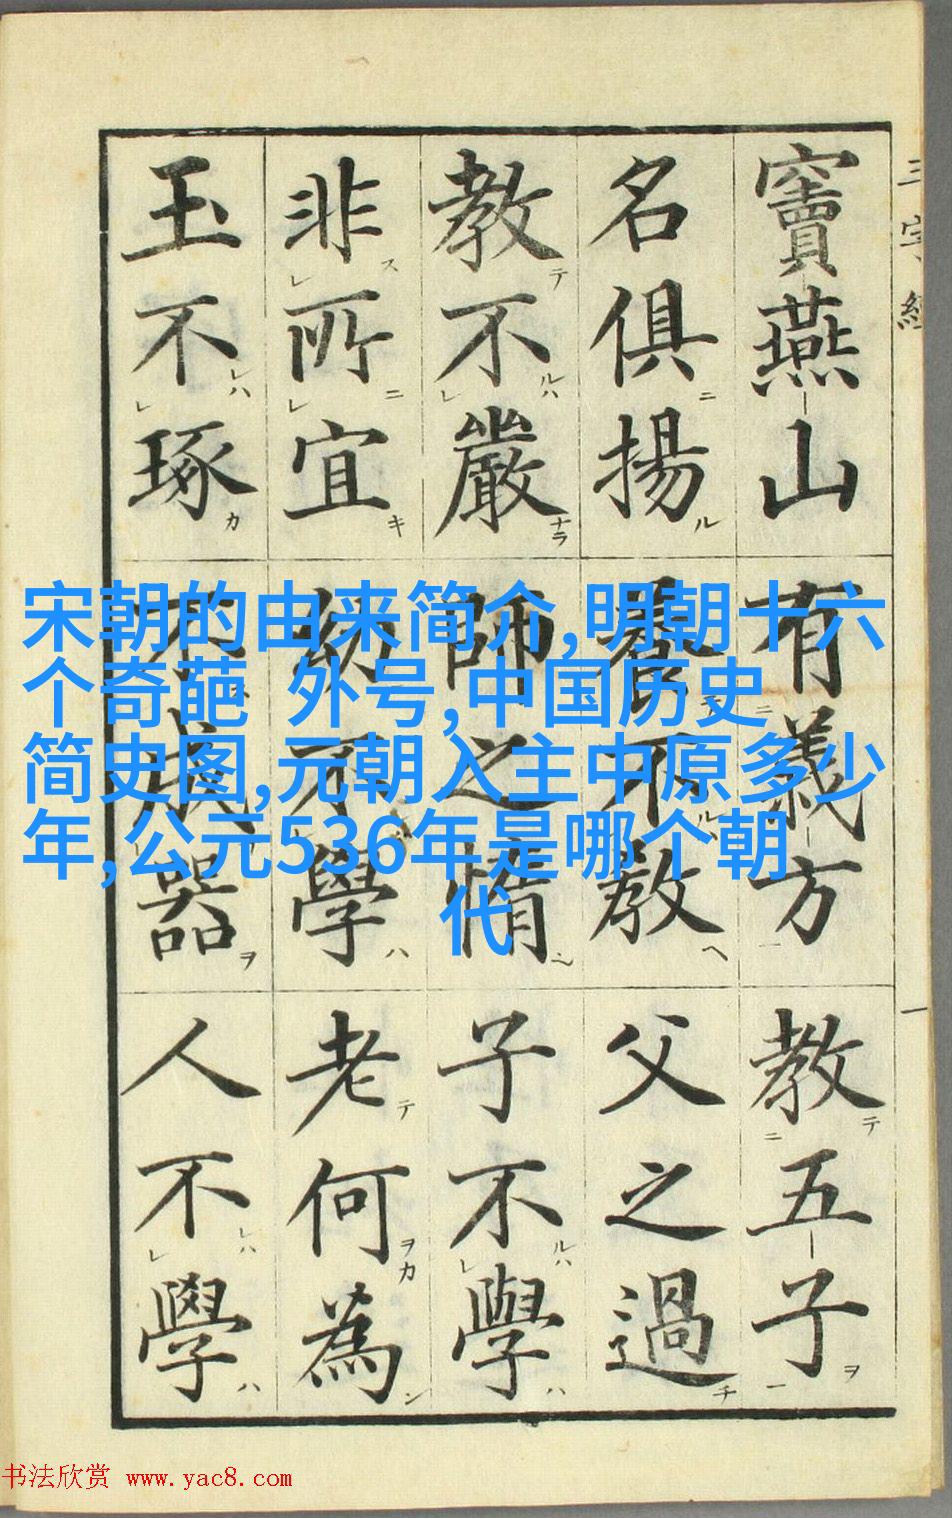 三字經
竇燕山有義方教五子
名俱揚養不教父之過
教不嚴師之惰子不學
非所宜幼不學老何為
玉不琢不成器人不學
宋朝的由来简介,明朝十六
个奇葩 外号,中国历史
简史图,元朝入主中原多少
年,公元536年是哪个朝
代
一
书法欣赏 www.yac8.com